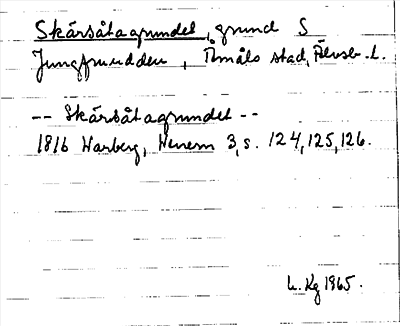 Skärsåtagrundet, grund S
Jungfrundden, Åmåls stad, Älvsb. L.
-- Skärsåtagrundet --
1816 Warberg, Wenern 3, s. 124, 125, 126.
L. Kg 1965.